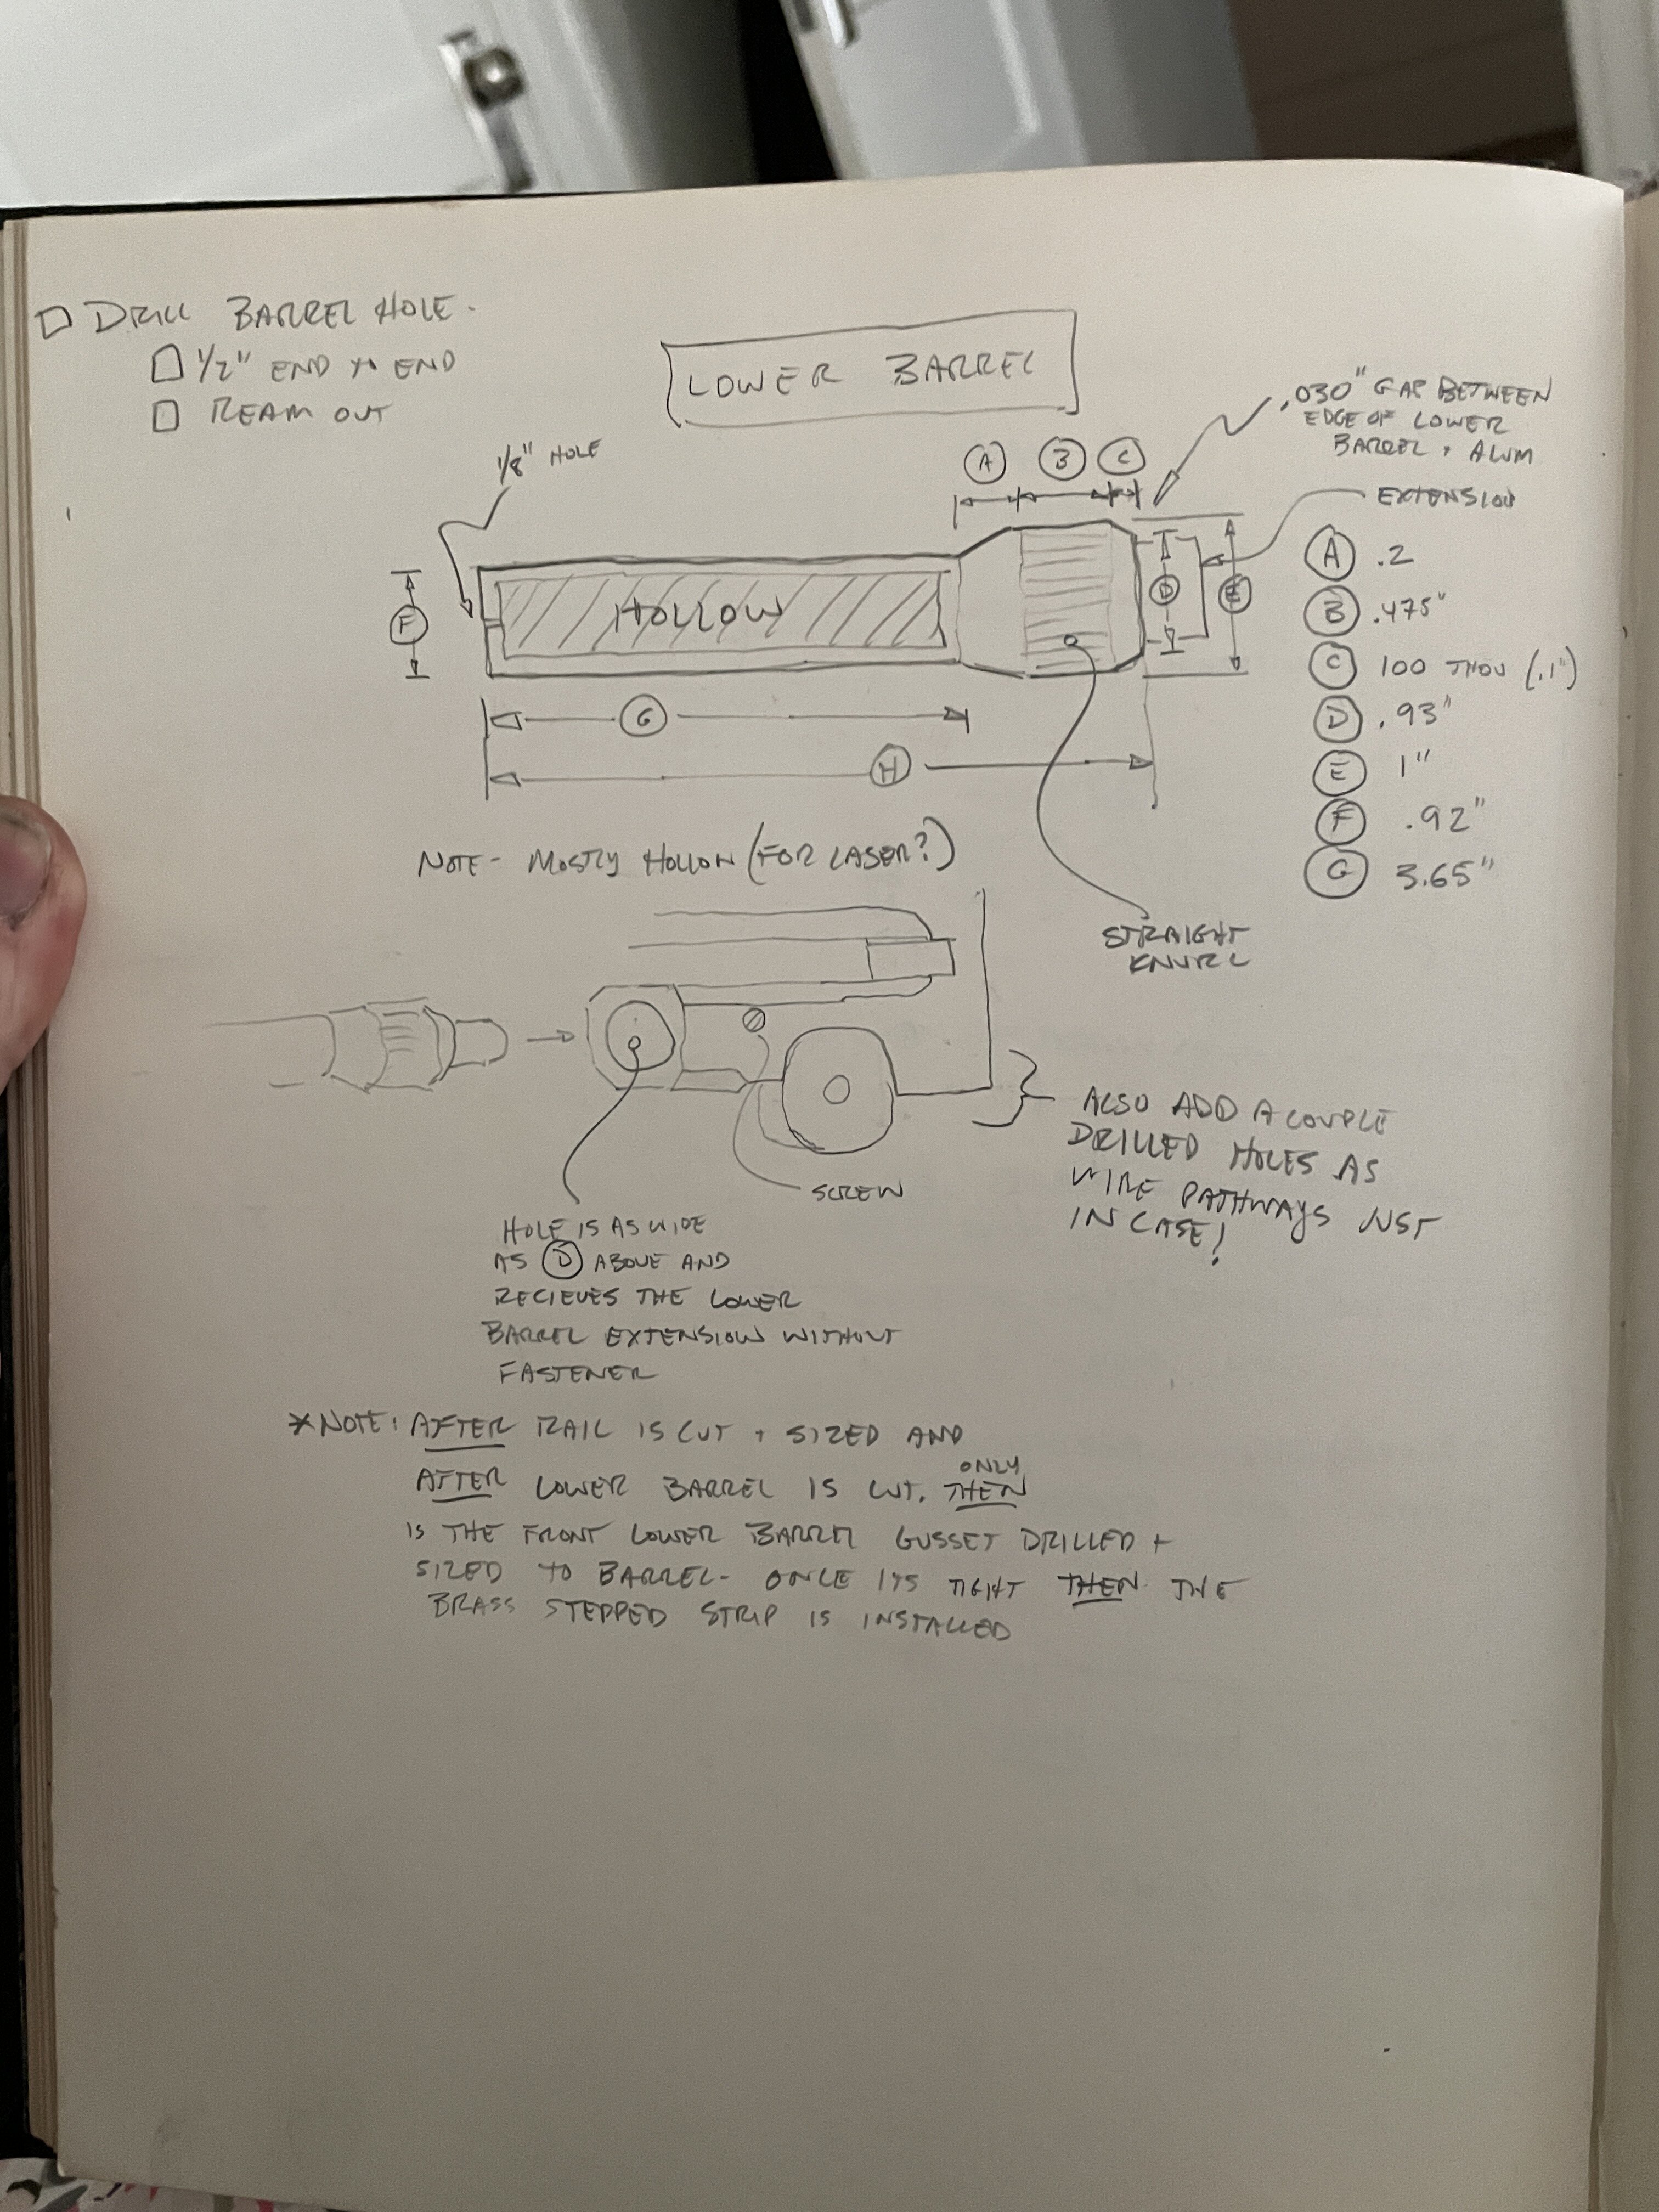 ☐ DRILL BARREL HOLE -
☐ 1/2" END TO END
☐ REAM OUT
LOWER BARREL
.030" GAP BETWEEN
EDGE OF LOWER
BARREL + ALUM
1/8" HOLE
A B C
EXTENSION
HOLLOW
F
D
E
G
H
A .2
B .475"
C 100 THOU (.1")
D .93"
E 1"
F .92"
G 3.65"
NOTE - MOSTLY HOLLOW (FOR LASER?)
STRAIGHT
KNURL
SCREW
ALSO ADD A COUPLE
DRILLED HOLES AS
WIRE PATHWAYS JUST
IN CASE!
HOLE IS AS WIDE
AS D ABOVE AND
RECIEVES THE LOWER
BARREL EXTENSION WITHOUT
FASTENER
*NOTE: AFTER RAIL IS CUT + SIZED AND
AFTER LOWER BARREL IS CUT. ONLY THEN
IS THE FRONT LOWER BARREL GUSSET DRILLED +
SIZED TO BARREL - ONCE ITS TIGHT THEN THE
BRASS STEPPED STRIP IS INSTALLED